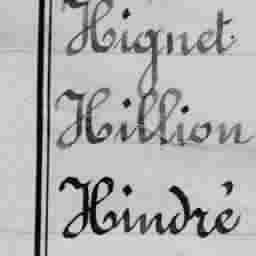 Hignet
Hillion
Hindré